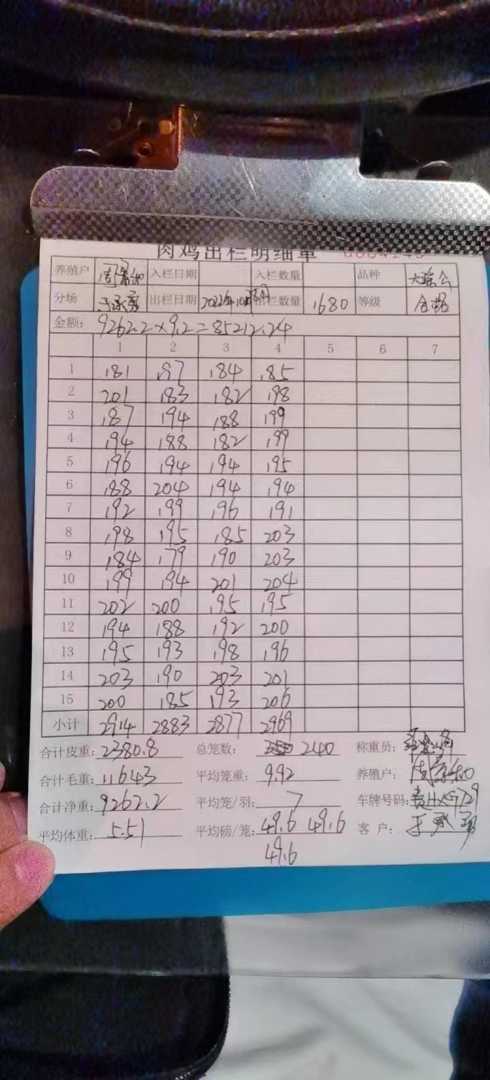 肉鸡出栏明细单
养殖户 入栏日期 入栏数量 品种
分场 出栏日期 出栏数量 1680 等级
金额: 9262.2×9.2=85212.24
1 2 3 4 5 6 7
1 181 197 184 185
2 201 183 182 198
3 187 194 188 199
4 194 188 182 199
5 196 194 194 195
6 188 204 194 194
7 192 199 196 191
8 198 195 185 203
9 184 179 190 203
10 199 194 201 204
11 202 200 195 195
12 194 188 192 200
13 195 193 198 196
14 203 190 203 201
15 200 185 193 206
小计 2914 2883 2877 2969
合计皮重: 2380.8 总笼数: 240 称重员:
合计毛重: 11643 平均笼重: 9.92 养殖户:
合计净重: 9262.2 平均笼/羽: 7 车牌号码:
平均体重: 5.51 平均磅/笼: 49.6 49.6 客户:
49.6